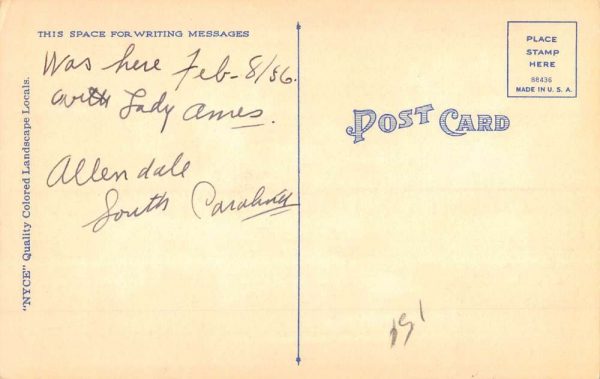 THIS SPACE FOR WRITING MESSAGES
Was here Feb-8/56.
with Lady Ames.
Allendale
South Carolina
"NYCE" Quality Colored Landscape Locals.
POST CARD
PLACE
STAMP
HERE
88436
MADE IN U. S. A.